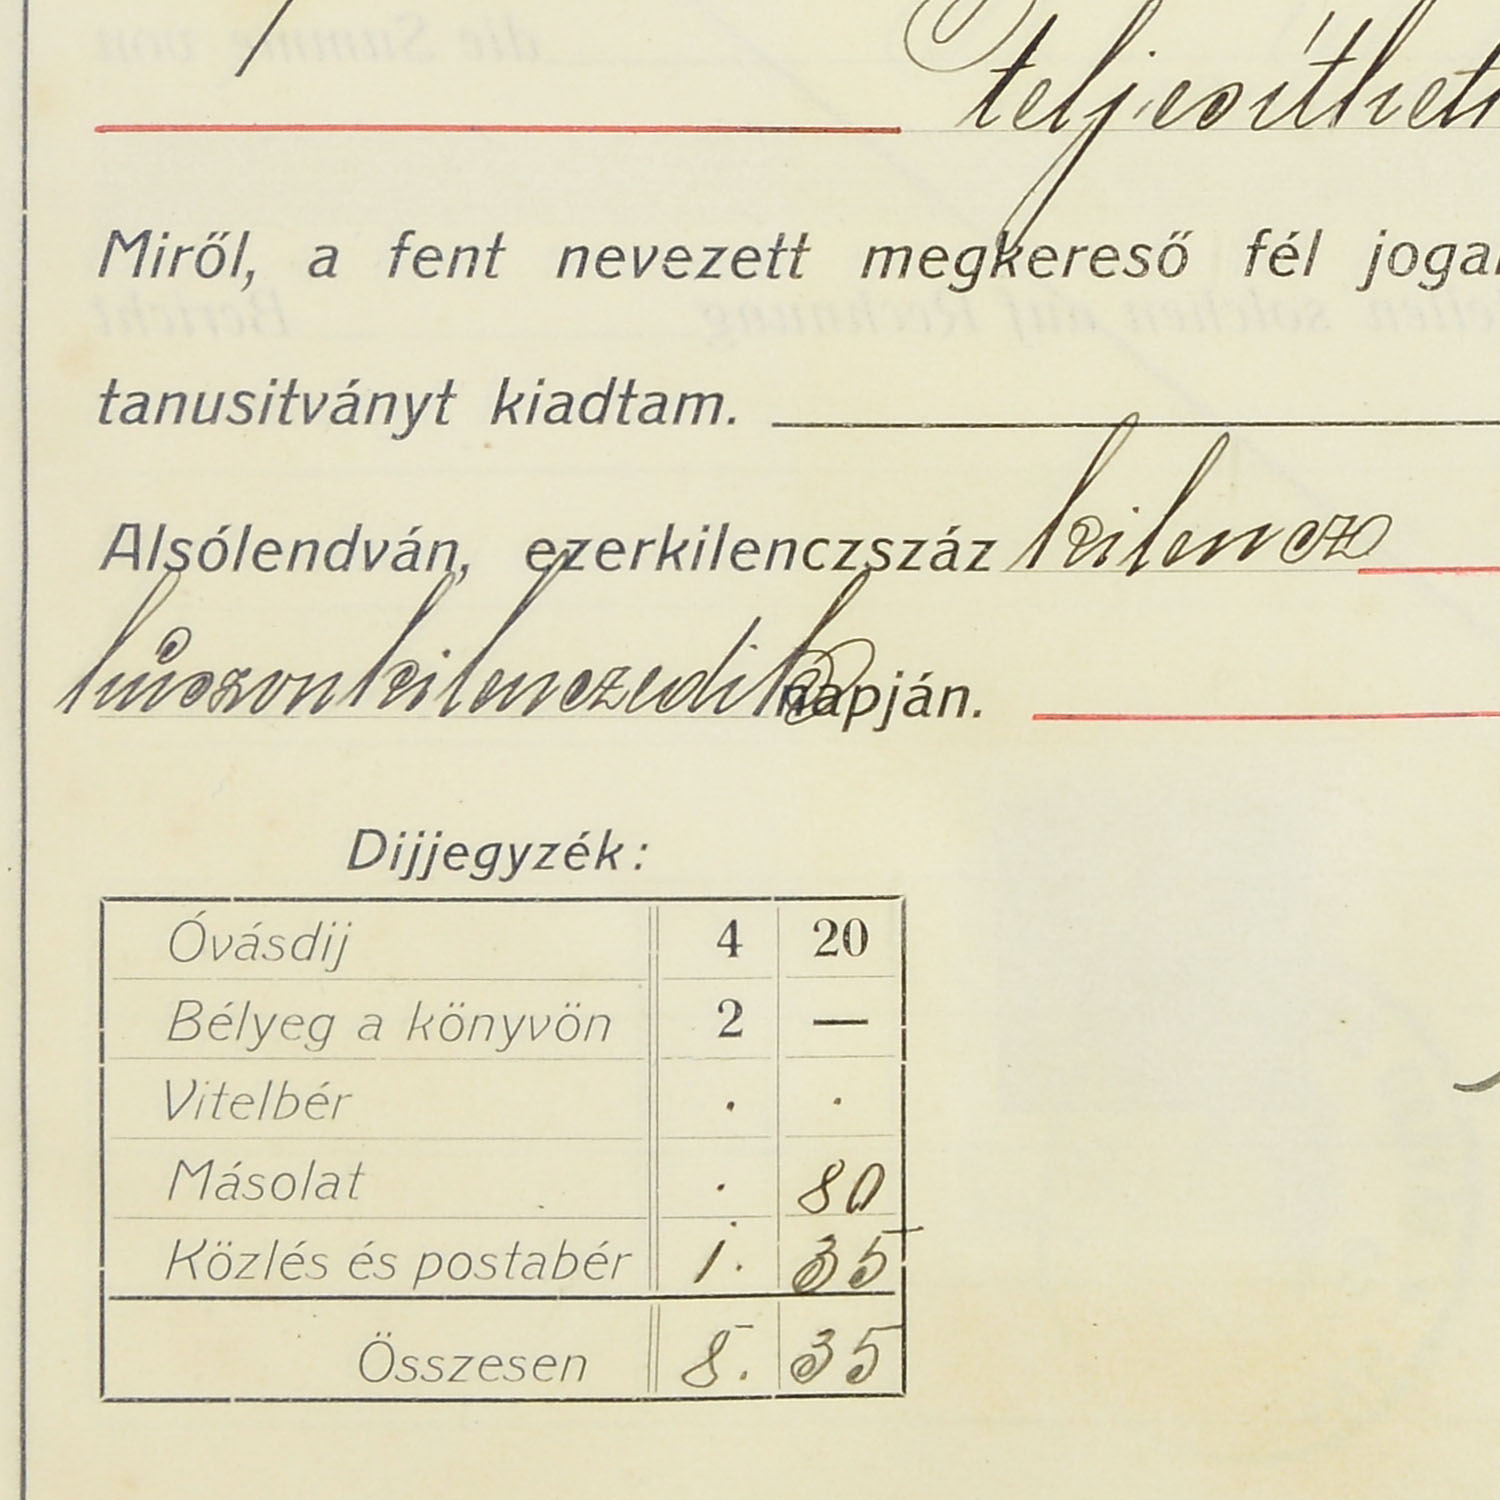 teljesíthet
Miről, a fent nevezett megkereső fél
tanusitványt kiadtam.
Alsólendván, ezerkilenczszáz kilencz
húszonkilenczedik napján.
Dijjegyzék:
Óvásdij 4 20
Bélyeg a könyvön 2 —
Vitelbér . .
Másolat . 80
Közlés és postabér 1. 35
Összesen 8. 35